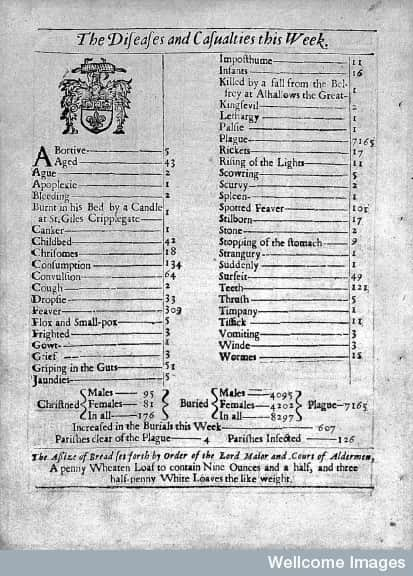 The Diſeaſes and Caſualties this Week.
ABortive 5
Aged 43
Ague 2
Apoplexie 1
Bleeding 2
Burnt in his Bed by a Candle
at St. Giles Cripplegate 1
Canker 1
Childbed 42
Chriſomes 18
Conſumption 134
Convulſion 64
Cough 2
Dropſie 33
Feaver 309
Flox and Small-pox 5
Frighted 3
Gowt 1
Grief 3
Griping in the Guts 51
Jaundies 5
Impoſthume 11
Infants 16
Killed by a fall from the Bel-
frey at Alhallows the Great 1
Kingſevil 2
Lethargy 1
Palſie 1
Plague 7165
Rickets 17
Riſing of the Lights 11
Scowring 5
Scurvy 2
Spleen 1
Spotted Feaver 101
Stilborn 17
Stone 2
Stopping of the ſtomach 9
Strangury 1
Suddenly 1
Surfeit 49
Teeth 121
Thruſh 5
Timpany 1
Tiſſick 11
Vomiting 3
Winde 3
Wormes 15
Chriſtned { Males 95 Females 81 In all 176 } Buried { Males 4095 Females 4202 In all 8297 } Plague 7165
Increaſed in the Burials this Week 607
Pariſhes clear of the Plague 4 Pariſhes Infected 126
The Aſſize of Bread ſet forth by Order of the Lord Maior and Court of Aldermen,
A penny Wheaten Loaf to contain Nine Ounces and a half, and three
half-penny White Loaves the like weight.
Wellcome Images